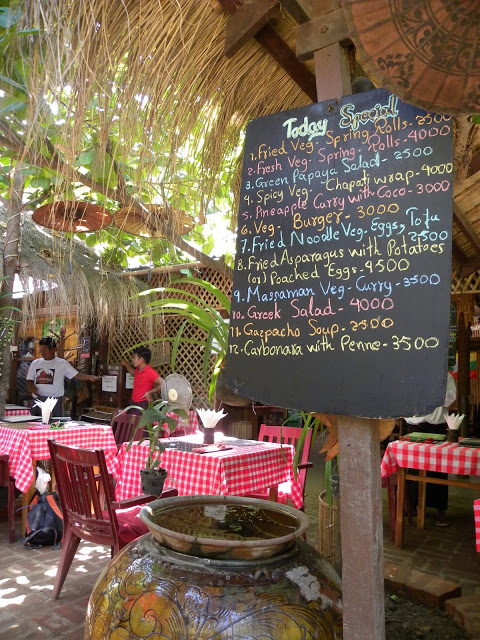 Today Special
1. Fried Veg - Spring Rolls - 2500
2. Fresh Veg - Spring - Rolls - 4000
3. Green Papaya Salad - 2500
4. Spicy Veg - Chapati wrap - 4000
5. Pineapple Curry with Coco - 3000
6. Veg - Burger - 3000
7. Fried Noodle Veg, Eggs, Tofu
2500
8. Fried Asparagus with Potatoes
(or) Poached Eggs - 4500
9. Massaman Veg - Curry - 3500
10. Greek Salad - 4000
11. Gazpacho Soup - 2500
12. Carbonara with Penne - 3500